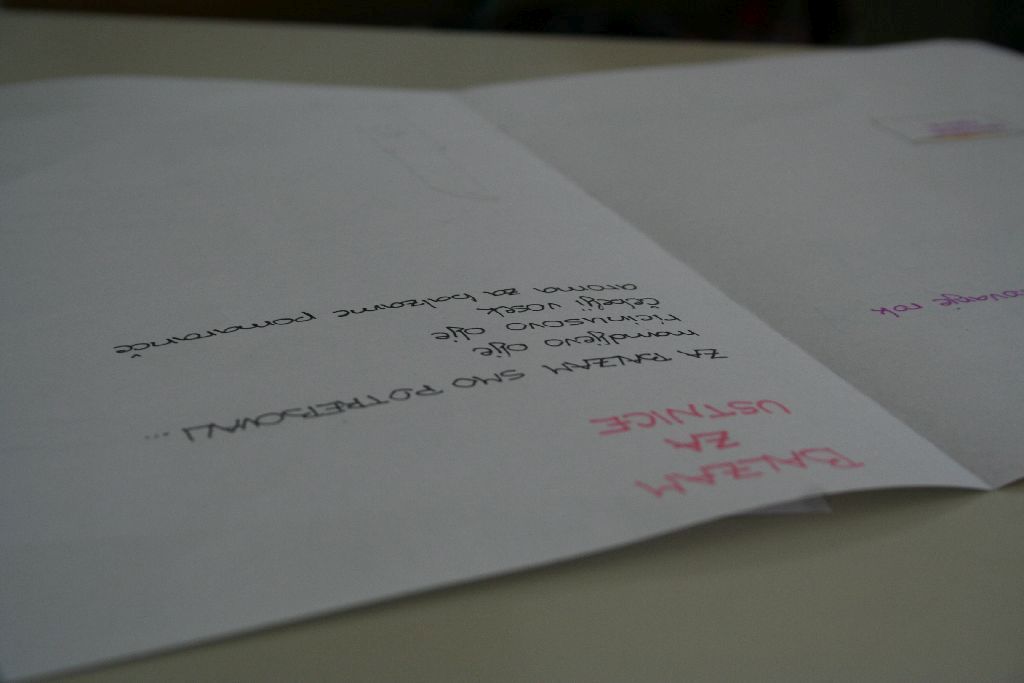 BALZAM
ZA
USTNICE
ZA BALZAM SMO POTREBOVALI...
mandljevo olje
ricinusovo olje
čebelji vosek
aroma za balzame pomaranče
rok